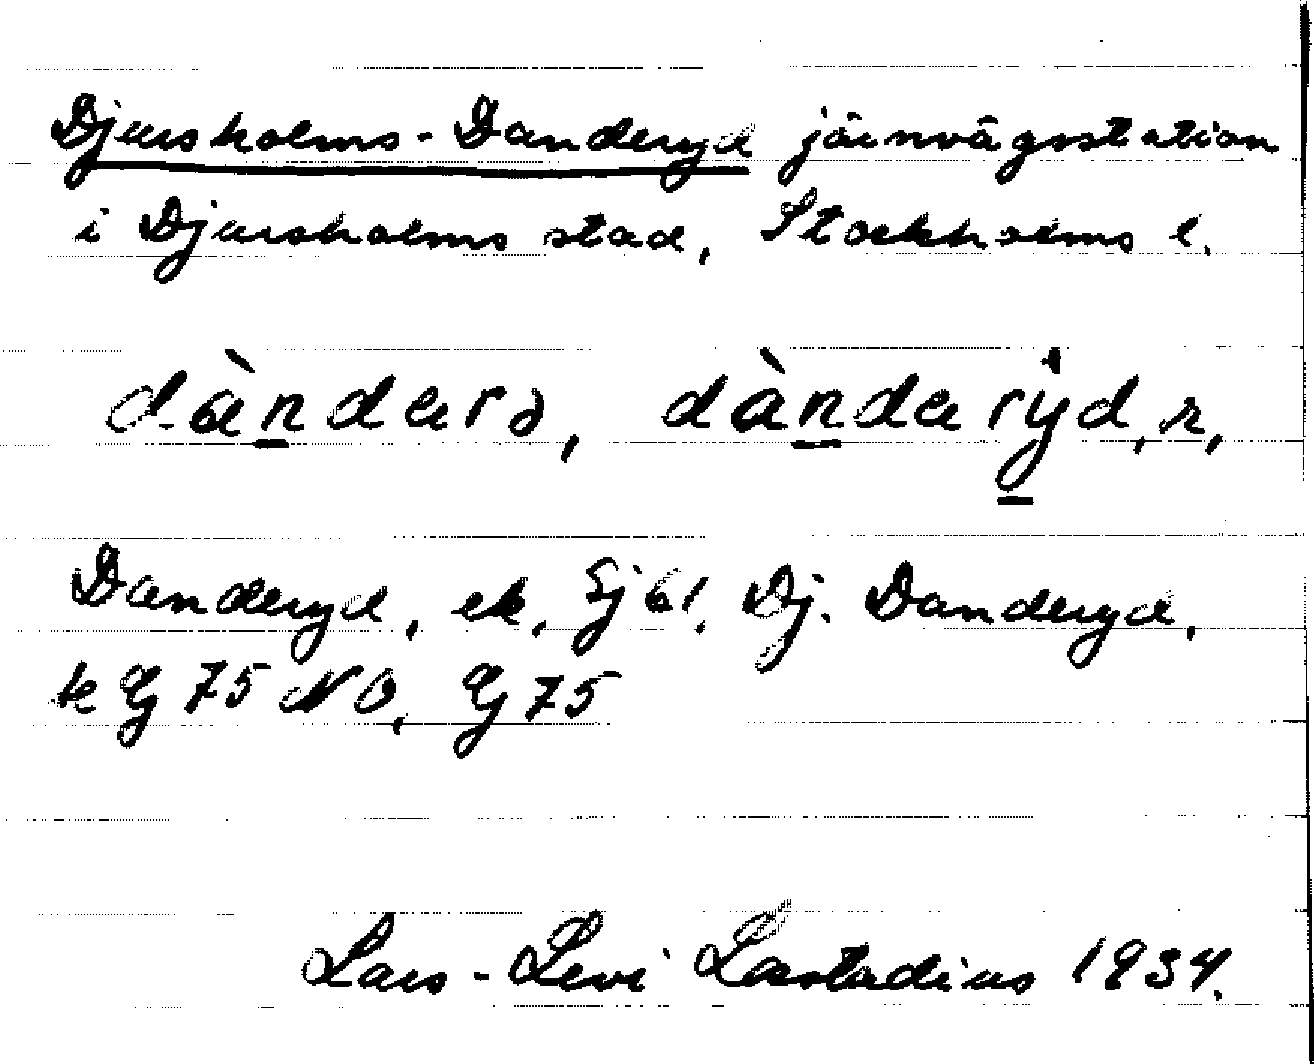 Djursholms-Danderyd järnvägsstation
i Djursholms stad, Stockholms l.
dànderə, dànderẙd, r,
Danderyd, ek, Sj 61, Dj. Danderyd,
k G 75 NO, G 75
Lars-Levi Læstadius 1934.